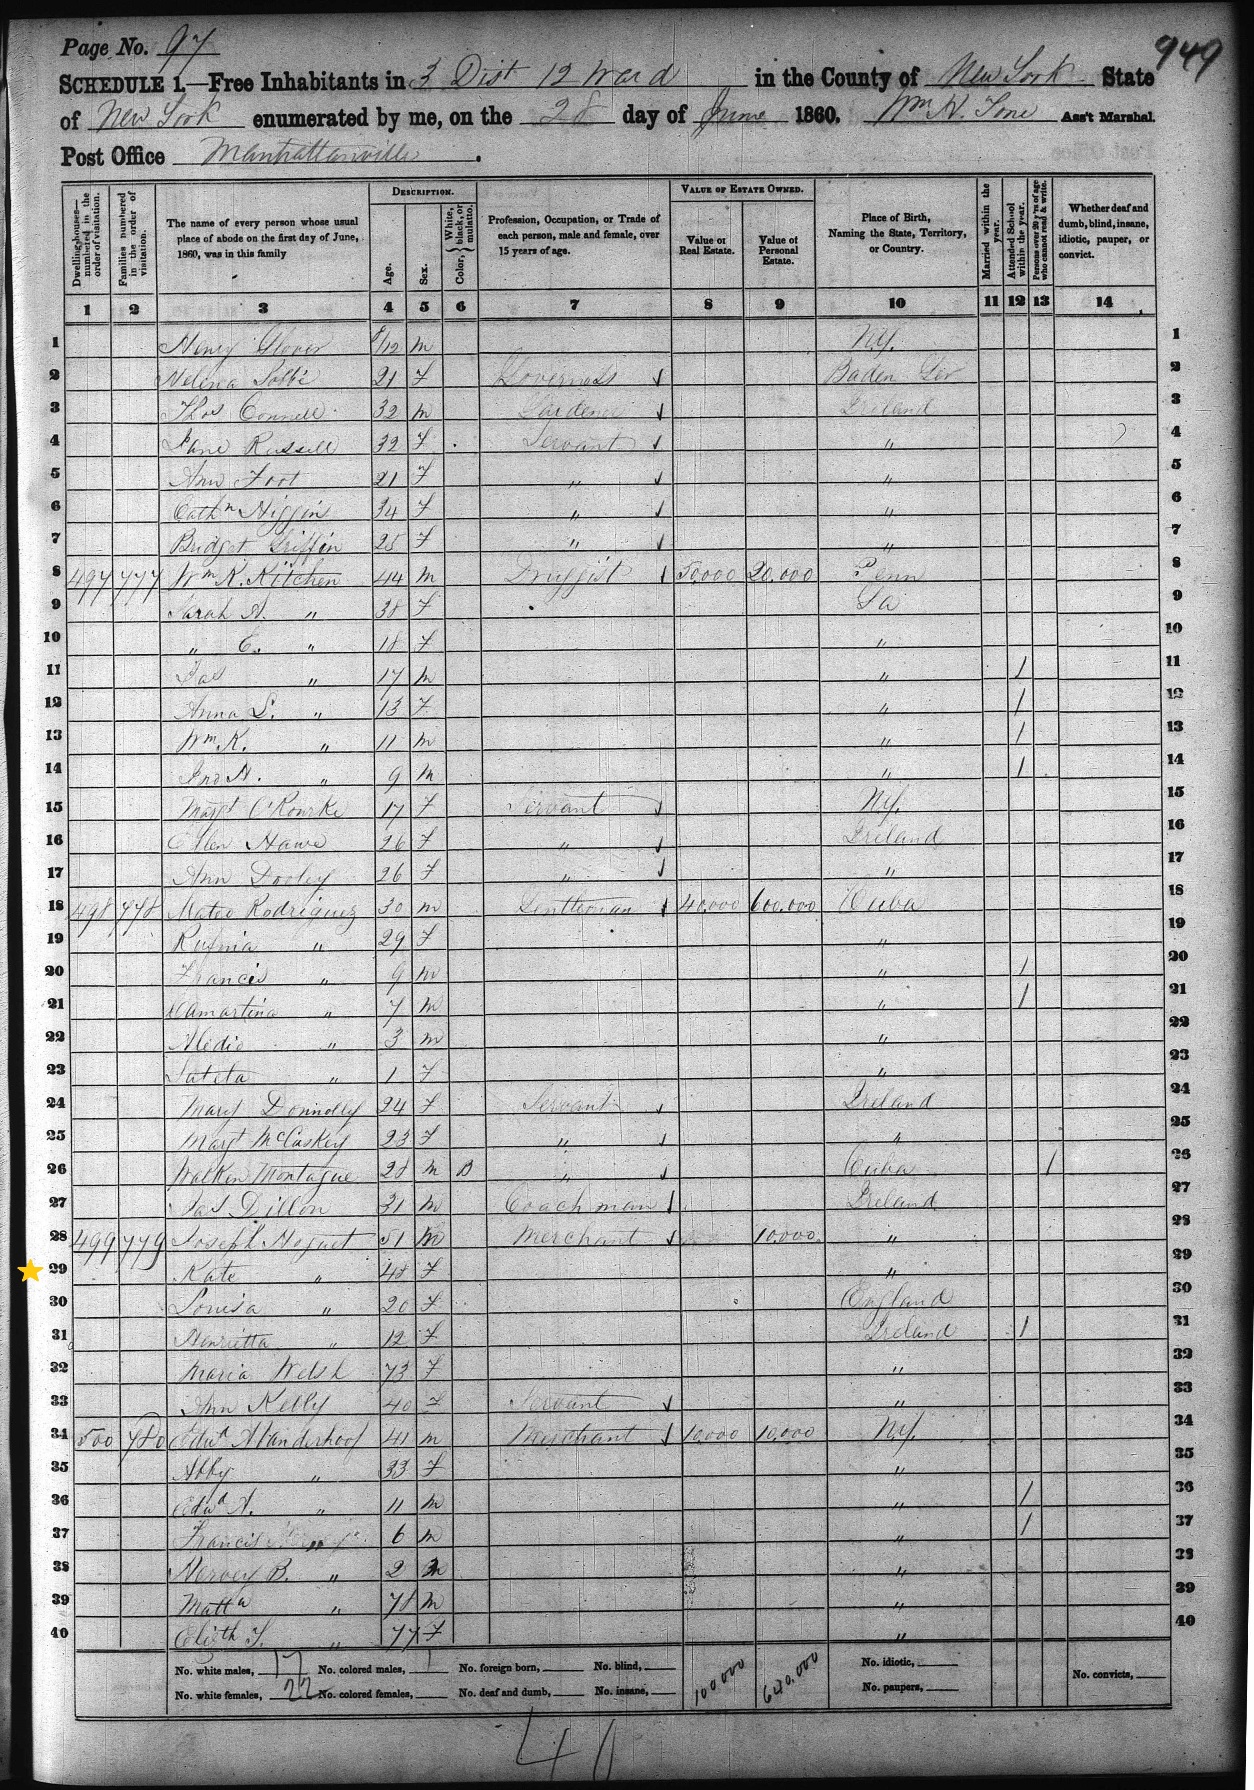 Page No. 97
949
SCHEDULE 1.—Free Inhabitants in 3 Dist 12 Ward in the County of New York State
of New York enumerated by me, on the 28 day of June 1860. Wm H. Ass't Marshal.
Post Office Manhattanville.
Dwelling-houses—numbered in the order of visitation.
Families numbered in the order of visitation.
The name of every person whose usual place of abode on the first day of June, 1860, was in this family
DESCRIPTION.
Age.
Sex.
Color, White, black, or mulatto.
Profession, Occupation, or Trade of each person, male and female, over 15 years of age.
VALUE OF ESTATE OWNED.
Value of Real Estate.
Value of Personal Estate.
Place of Birth, Naming the State, Territory, or Country.
Married within the year.
Attended School within the year.
Persons over 20 y'rs of age who cannot read & write.
Whether deaf and dumb, blind, insane, idiotic, pauper, or convict.
1 2 3 4 5 6 7 8 9 10 11 12 13 14
1 Henry Glover /12 m NY. 1
2 Helena 21 F Governess Baden Ger 2
3 Thos Connell 32 m Gardener Ireland 3
4 Jane Russell 32 F Servant " 4
5 Ann Foot 21 F " " 5
6 Cathn Higgin 34 F " " 6
7 Bridget Griffin 25 F " " 7
8 497 777 Wm K. Kitchen 44 m Druggist 50,000 20,000 Penn 8
9 Sarah A. " 38 F Ga 9
10 " C. " 18 F " 10
11 Jas " 17 m " / 11
12 Anna L. " 13 F " / 12
13 Wm K. " 11 m " / 13
14 Jno H. " 9 m " / 14
15 Margt O'Rourke 17 F Servant NY. 15
16 Ellen Hawe 26 F " Ireland 16
17 Ann Dooley 26 F " " 17
18 498 778 Mateo Rodriguez 30 m Gentleman 40,000 600,000 Cuba 18
19 Rufina " 29 F " 19
20 Francis " 9 m " / 20
21 Lamartina " 7 m " / 21
22 Aledio " 3 m " 22
23 " 1 F " 23
24 Mary Donnolly 24 F Servant Ireland 24
25 Margt McCaskey 23 F " " 25
26 Walken Montague 28 m B " Cuba / 26
27 Jas Dillon 31 m Coachman Ireland 27
28 499 779 Joseph Hoguet 51 m Merchant 10,000 " 28
29 Kate " 48 F " 29
30 Louisa " 20 F England 30
31 Henrietta " 12 F Ireland / 31
32 Maria Welsh 73 F " 32
33 Ann Kelly 40 F Servant " 33
34 500 780 Edwd A Vanderhoof 41 m Merchant 10,000 10,000 NY. 34
35 Abby " 33 F " 35
36 Edwd A. " 11 m " / 36
37 Francis " 6 m " / 37
38 Harvey B. " 2 m " 38
39 Matt " 78 m " 39
40 Elizth T. " 77 F " 40
No. white males, 17 No. colored males, 1 No. foreign born, No. blind, 100000 630,000 No. idiotic,
No. white females, 22 No. colored females, No. deaf and dumb, No. insane, No. paupers, No. convicts,
40